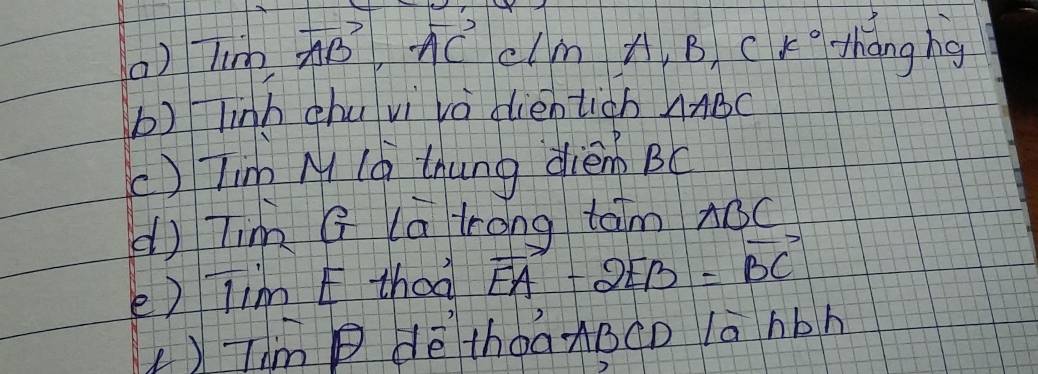 a) Tìm AB, AC c/m A, B, C k° thẳng hg
b) Tính chu vi và diện tích ΔABC
c) Tìm M là trung điểm BC
d) Tìm G là trọng tâm ABC
e) Tìm E thoả EA - 2EB = BC
f) Tìm D để thoả ABCD là hbh